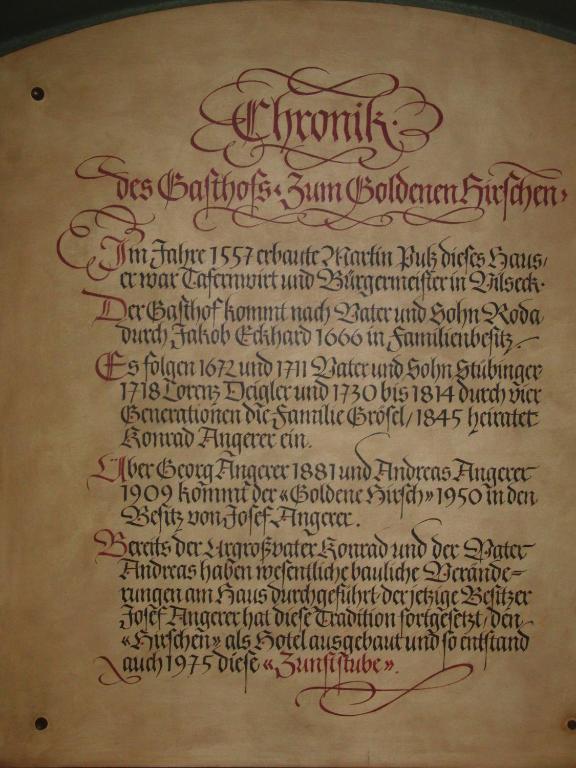 Chronik.
des Gasthofs ‹Zum Goldenen Hirschen›
Im Jahre 1557 erbaute Martin Pulz dieses Haus,
er war Tafernwirt und Bürgermeister in Vilseck.
Der Gasthof kommt nach Vater und Sohn Roda
durch Jakob Eckhard 1666 in Familienbesitz.
Es folgen 1672 und 1711 Vater und Sohn Stübinger
1718 Lorenz Deigler und 1730 bis 1814 durch vier
Generationen die Familie Grösel, 1845 heiratet
Konrad Angerer ein.
Über Georg Angerer 1881 und Andreas Angerer
1909 kommt der «Goldene Hirsch» 1950 in den
Besitz von Josef Angerer.
Bereits der Urgroßvater Konrad und der Vater
Andreas haben wesentliche bauliche Verände=
rungen am Haus durchgeführt, der jetzige Besitzer
Josef Angerer hat diese Tradition fortgesetzt, den
«Hirschen» als Hotel ausgebaut und so entstand
auch 1975 diese «Zunftstube».